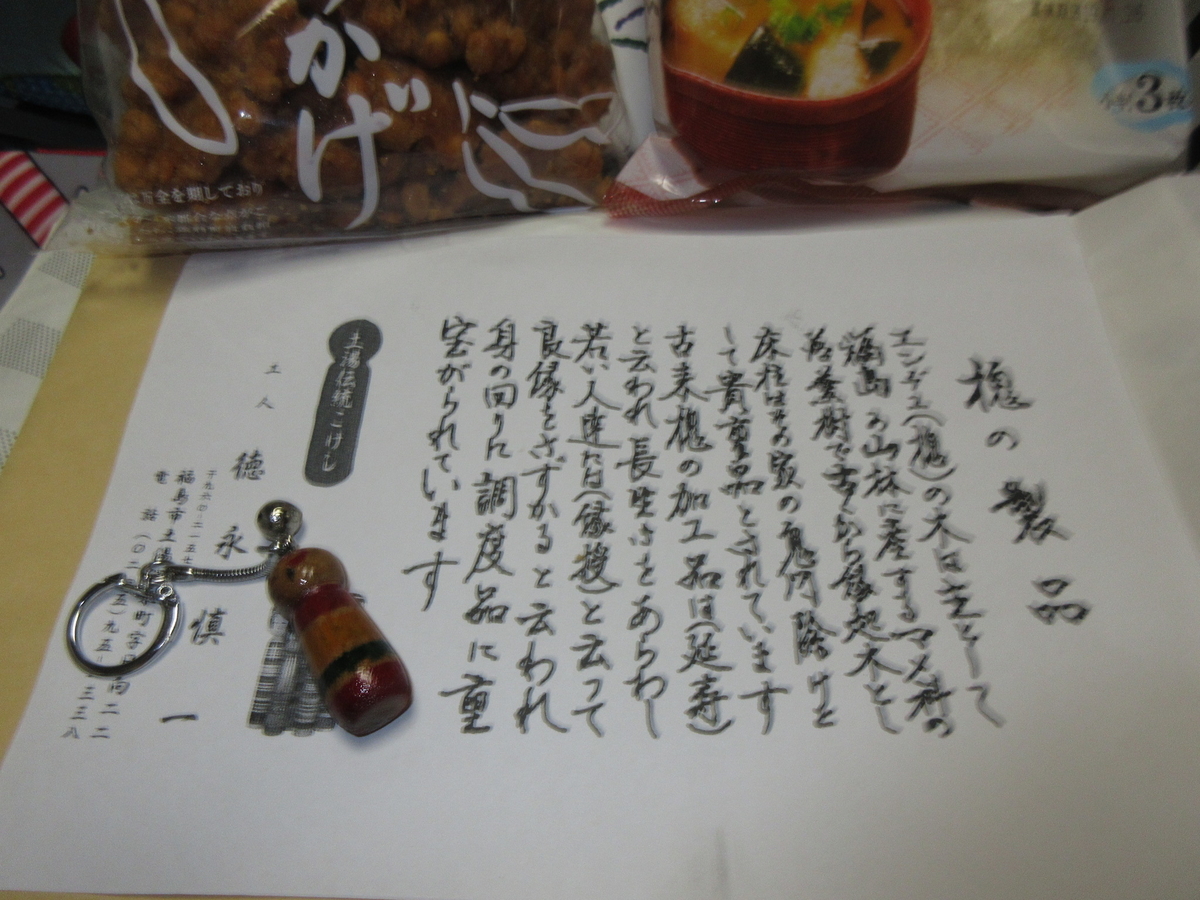 かげ
万全を期しており
3枚
槐の製品
エンヂュ(槐)の木は主として
福島の山林に産するマメ科の
落葉樹で古くから縁起木とし
床柱はその家の鬼門除けと
して貴重品とされています
古来槐の加工品は(延寿)
と云われ長生きをあらわし
若い人達には(縁授)と云って
良縁をさずかると云われ
身の回りに調度品に重
宝がられています
土湯伝統こけし
工人
徳永慎一
福島市土湯
町字
向二二
電話(〇二
五)九五
三二八